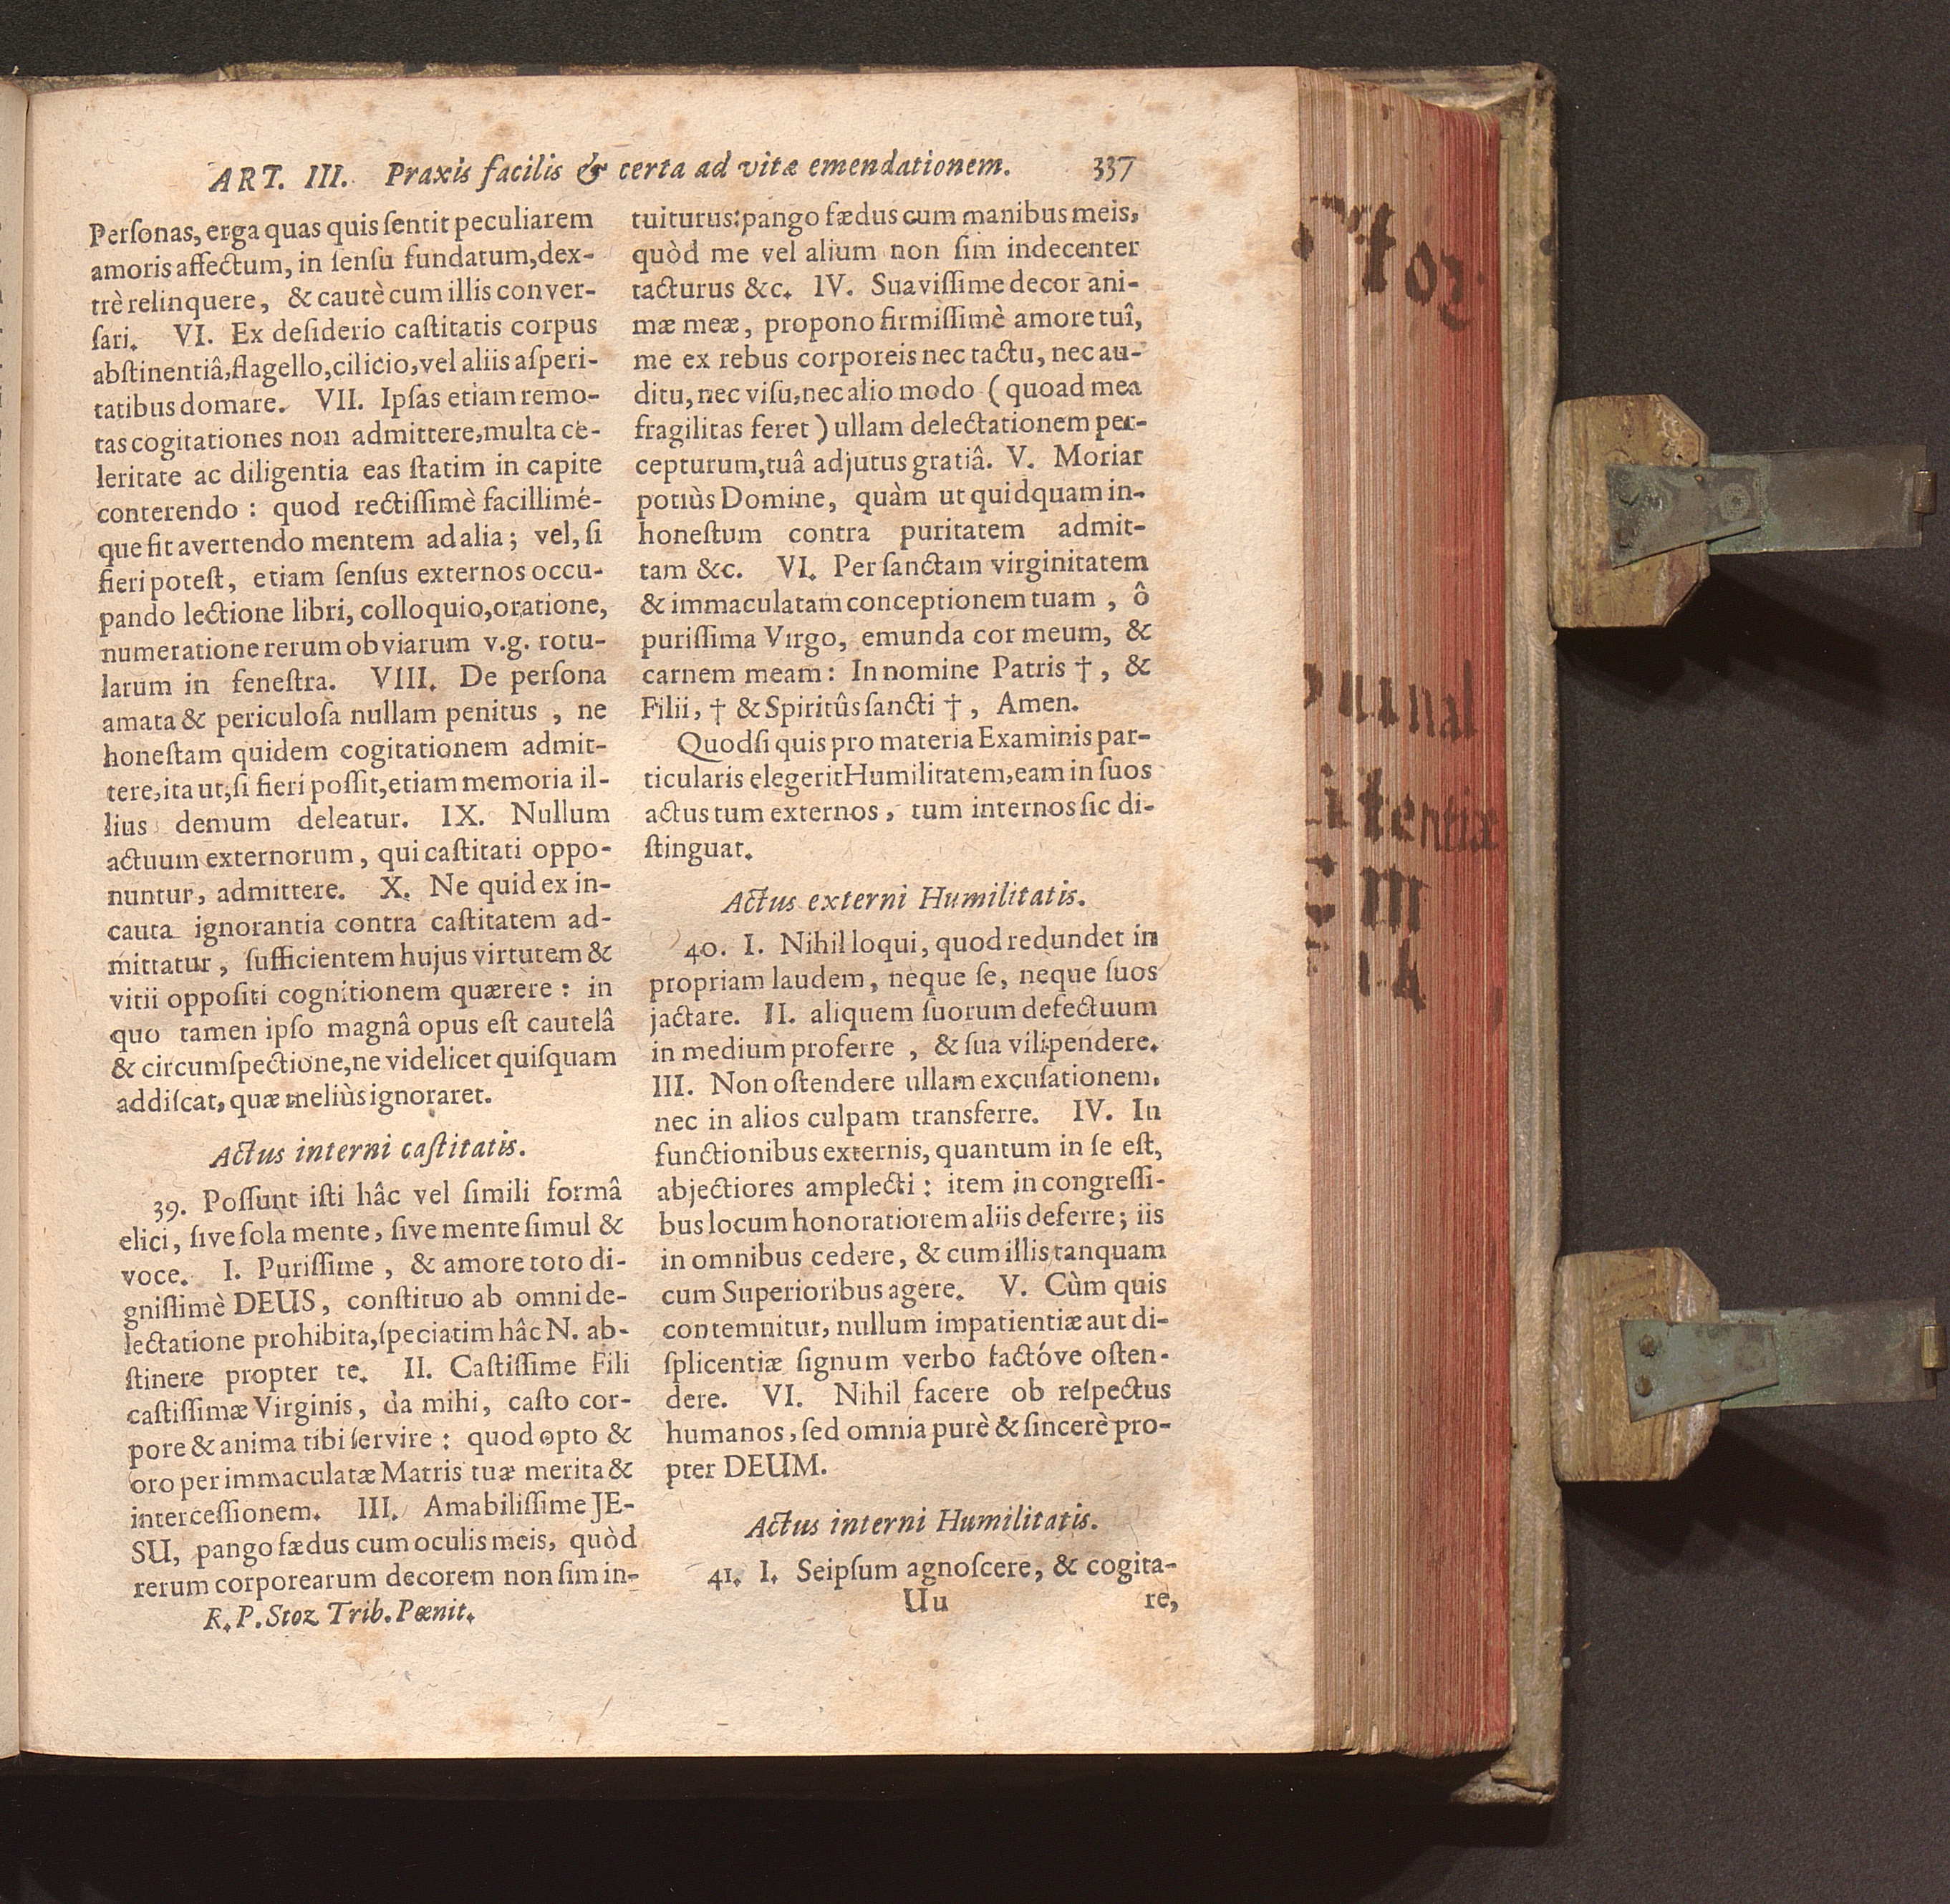 ART. III. Praxis facilis & certa ad vitæ emendationem. 337
Perſonas, erga quas quis ſentit peculiarem
amoris affectum, in ſenſu fundatum, dex-
trè relinquere, & cautè cum illis conver-
ſari. VI. Ex deſiderio caſtitatis corpus
abſtinentiâ, flagello, cilicio, vel aliis aſperi-
tatibus domare. VII. Ipſas etiam remo-
tas cogitationes non admittere, multa ce-
leritate ac diligentia eas ſtatim in capite
conterendo : quod rectiſſimè facillimé-
que fit avertendo mentem ad alia ; vel, ſi
fieri poteſt, etiam ſenſus externos occu-
pando lectione libri, colloquio, oratione,
numeratione rerum obviarum v.g. rotu-
larum in feneſtra. VIII. De perſona
amata & periculoſa nullam penitus , ne
honeſtam quidem cogitationem admit-
tere, ita ut, ſi fieri poſſit, etiam memoria il-
lius demum deleatur. IX. Nullum
actuum externorum, qui caſtitati oppo-
nuntur, admittere. X. Ne quid ex in-
cauta ignorantia contra caſtitatem ad-
mittatur, ſufficientem hujus virtutem &
vitii oppoſiti cognitionem quærere : in
quo tamen ipſo magnâ opus eſt cautelâ
& circumſpectione, ne videlicet quiſquam
addiſcat, quæ meliùs ignoraret.
Actus interni caſtitatis.
39. Poſſunt iſti hâc vel ſimili formâ
elici, ſive ſola mente, ſive mente ſimul &
voce. I. Puriſſime , & amore toto di-
gniſſimè DEUS, conſtituo ab omni de-
lectatione prohibita, ſpeciatim hâc N. ab-
ſtinere propter te. II. Caſtiſſime Fili
caſtiſſimæ Virginis, da mihi, caſto cor-
pore & anima tibi ſervire : quod opto &
oro per immaculatæ Matris tuæ merita &
interceſſionem. III. Amabiliſſime JE-
SU, pango fædus cum oculis meis, quòd
rerum corporearum decorem non ſim in-
R. P. Stoz Trib. Pœnit.
tuiturus: pango fædus cum manibus meis,
quòd me vel alium non ſim indecenter
tacturus &c. IV. Suaviſſime decor ani-
mæ meæ, propono firmiſſimè amore tuî,
me ex rebus corporeis nec tactu, nec au-
ditu, nec viſu, nec alio modo ( quoad mea
fragilitas feret ) ullam delectationem per-
cepturum, tuâ adjutus gratiâ. V. Moriar
potiùs Domine, quàm ut quidquam in-
honeſtum contra puritatem admit-
tam &c. VI. Per ſanctam virginitatem
& immaculatam conceptionem tuam , ô
puriſſima Virgo, emunda cor meum, &
carnem meam : In nomine Patris †, &
Filii, † & Spiritûs ſancti †, Amen.
Quodſi quis pro materia Examinis par-
ticularis elegerit Humilitatem, eam in ſuos
actus tum externos, tum internos ſic di-
ſtinguat.
Actus externi Humilitatis.
40. I. Nihil loqui, quod redundet in
propriam laudem, neque ſe, neque ſuos
jactare. II. aliquem ſuorum defectuum
in medium proferre , & ſua vilipendere.
III. Non oſtendere ullam excuſationem,
nec in alios culpam transferre. IV. In
functionibus externis, quantum in ſe eſt,
abjectiores amplecti : item in congreſſi-
bus locum honoratiorem aliis deferre ; iis
in omnibus cedere, & cum illis tanquam
cum Superioribus agere. V. Cùm quis
contemnitur, nullum impatientiæ aut di-
ſplicentiæ ſignum verbo factóve oſten-
dere. VI. Nihil facere ob reſpectus
humanos, ſed omnia purè & ſincerè pro-
pter DEUM.
Actus interni Humilitatis.
41. I. Seipſum agnoſcere, & cogita-
Uu re,